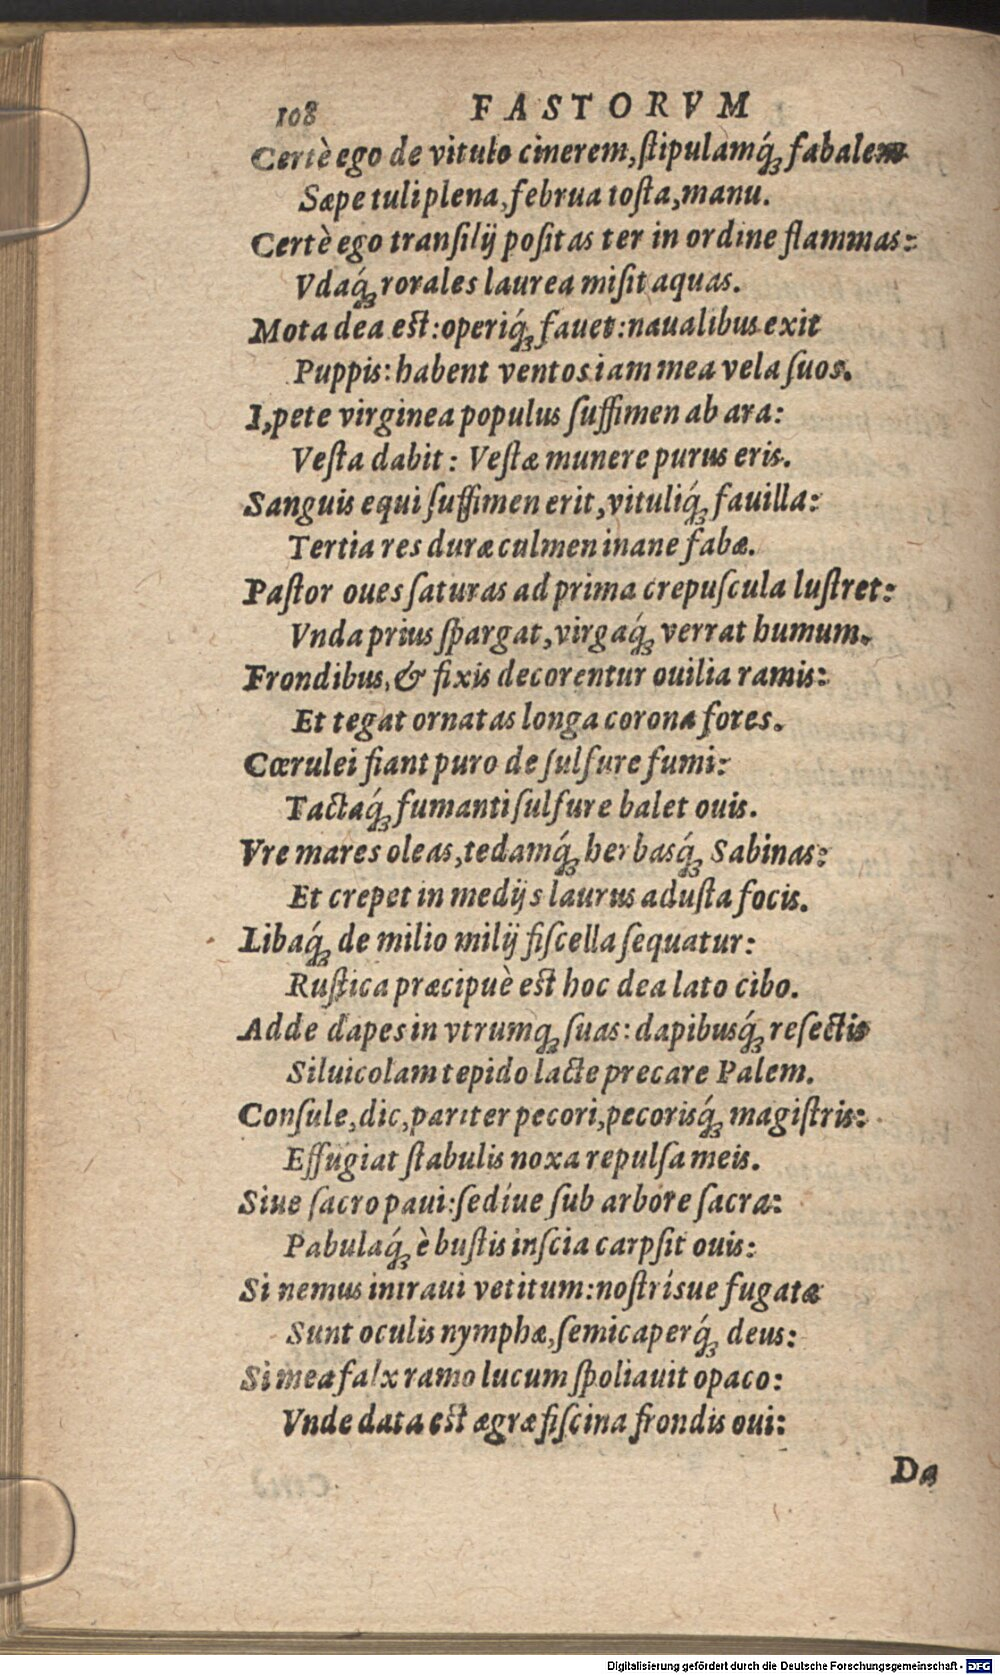 108 FASTORVM
Certè ego de vitulo cinerem, ſtipulamq́ꝫ fabalem
Sæpe tuli plena, februa toſta, manu.
Certè ego tranſilij poſitas ter in ordine flammas:
Vdaq́ꝫ rorales laurea miſit aquas.
Mota dea est: operiq́ꝫ fauet: naualibus exit
Puppis: habent ventos iam mea vela ſuos.
I, pete virginea populus ſuffimen ab ara:
Veſta dabit: Veſtæ munere purus eris.
Sanguis equi ſuffimen erit, vituliq́ꝫ fauilla:
Tertia res duræ culmen inane fabæ.
Paſtor oues ſaturas ad prima crepuſcula luſtret:
Vnda prius ſpargat, virgaq́ꝫ verrat humum.
Frondibus, & fixis decorentur ouilia ramis:
Et tegat ornatas longa corona fores.
Cœrulei fiant puro de ſulfure fumi:
Tactaq́ꝫ fumanti ſulfure balet ouis.
Vre mares oleas, tedamq́ꝫ herbasq́ꝫ Sabinas:
Et crepet in medijs laurus aduſta focis.
Libaq́ꝫ de milio milij fiſcella ſequatur:
Ruſtica præcipuè est hoc dea lato cibo.
Adde dapes in vtrumqꝫ ſuas: dapibusq́ꝫ reſectis
Siluicolam tepido lacte precare Palem.
Conſule, dic, pariter pecori, pecorisq́ꝫ magiſtris:
Effugiat ſtabulis noxa repulſa meis.
Siue ſacro paui: ſediue ſub arbore ſacra:
Pabulaq́ꝫ è buſtis inſcia carpſit ouis:
Si nemus intraui vetitum: noſtrísue fugatæ
Sunt oculis nymphæ, ſemicaperq́ꝫ deus:
Si mea falx ramo lucum ſpoliauit opaco:
Vnde data est ægræ fiſcina frondis oui:
Da
Digitalisierung gefördert durch die Deutsche Forschungsgemeinschaft - DFG